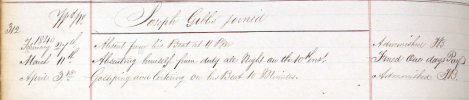 312 Joseph Gibbs joined
1840
February 27th Absent from his Beat at 4 PM Admonished
March 11th Absenting himself from duty all Night on the 10th Inst. Fined One days Pay
April 3rd Gossiping and loitering on his Beat 10 Minutes. Admonished